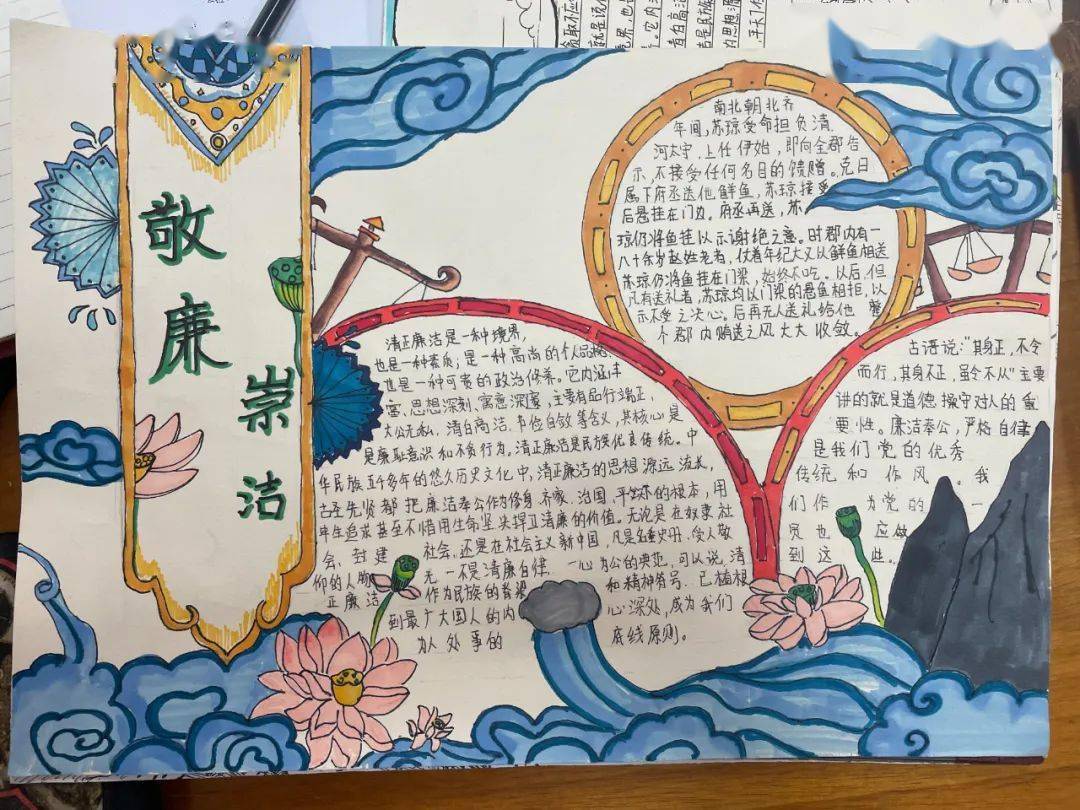 敬廉
崇洁
南北朝北齐
年间，苏琼受命担负清
河太守，上任伊始，即向全郡告
示，不接受任何名目的馈赠。克日
属下府丞送他鲜鱼，苏琼接受
后悬挂在门边。府丞再送，苏
琼仍将鱼挂以示谢绝之意。时郡内有一
八十余岁赵姓老者，仗着年纪大又以鲜鱼相送
苏琼仍将鱼挂在门梁，始终不吃。以后，但
凡有送礼者，苏琼均以门梁的悬鱼相拒，以
示不受之决心。后再无人送礼给他 整
个郡内贿送之风大大收敛。
清正廉洁是一种境界，
也是一种素质；是一种高尚的个人品格
也是一种可贵的政治修养。它内涵丰
富、思想深刻、寓意深邃，主要有品行端正、
大公无私、清白高洁、节俭自敛等含义，其核心是
是廉耻意识和不贪行为。清正廉洁是民族优良传统。中
华民族五千多年的悠久历史文化中，清正廉洁的思想源远流长，
古圣先贤都把廉洁奉公作为修身齐家、治国、平的根本，用
毕生追求甚至不惜用生命坚决捍卫清廉的价值。无论是在奴隶社
会、封建社会，还是在社会主义新中国，凡是名垂史册、受人敬
仰的人物 无一不是清廉自律、一心为公的典范，可以说，清
正廉洁 作为民族的脊梁 和精神符号，已植根
到最广大国人的内 心深处，成为我们
为人处事的 底线原则。
古语说：“其身正，不令
而行，其身不正，虽令不从”主要
讲的就是道德操守对人的重
要性。廉洁奉公，严格自律
是我们党的优秀
传统和作风。我
们作为党的一
员也应做
到这些。